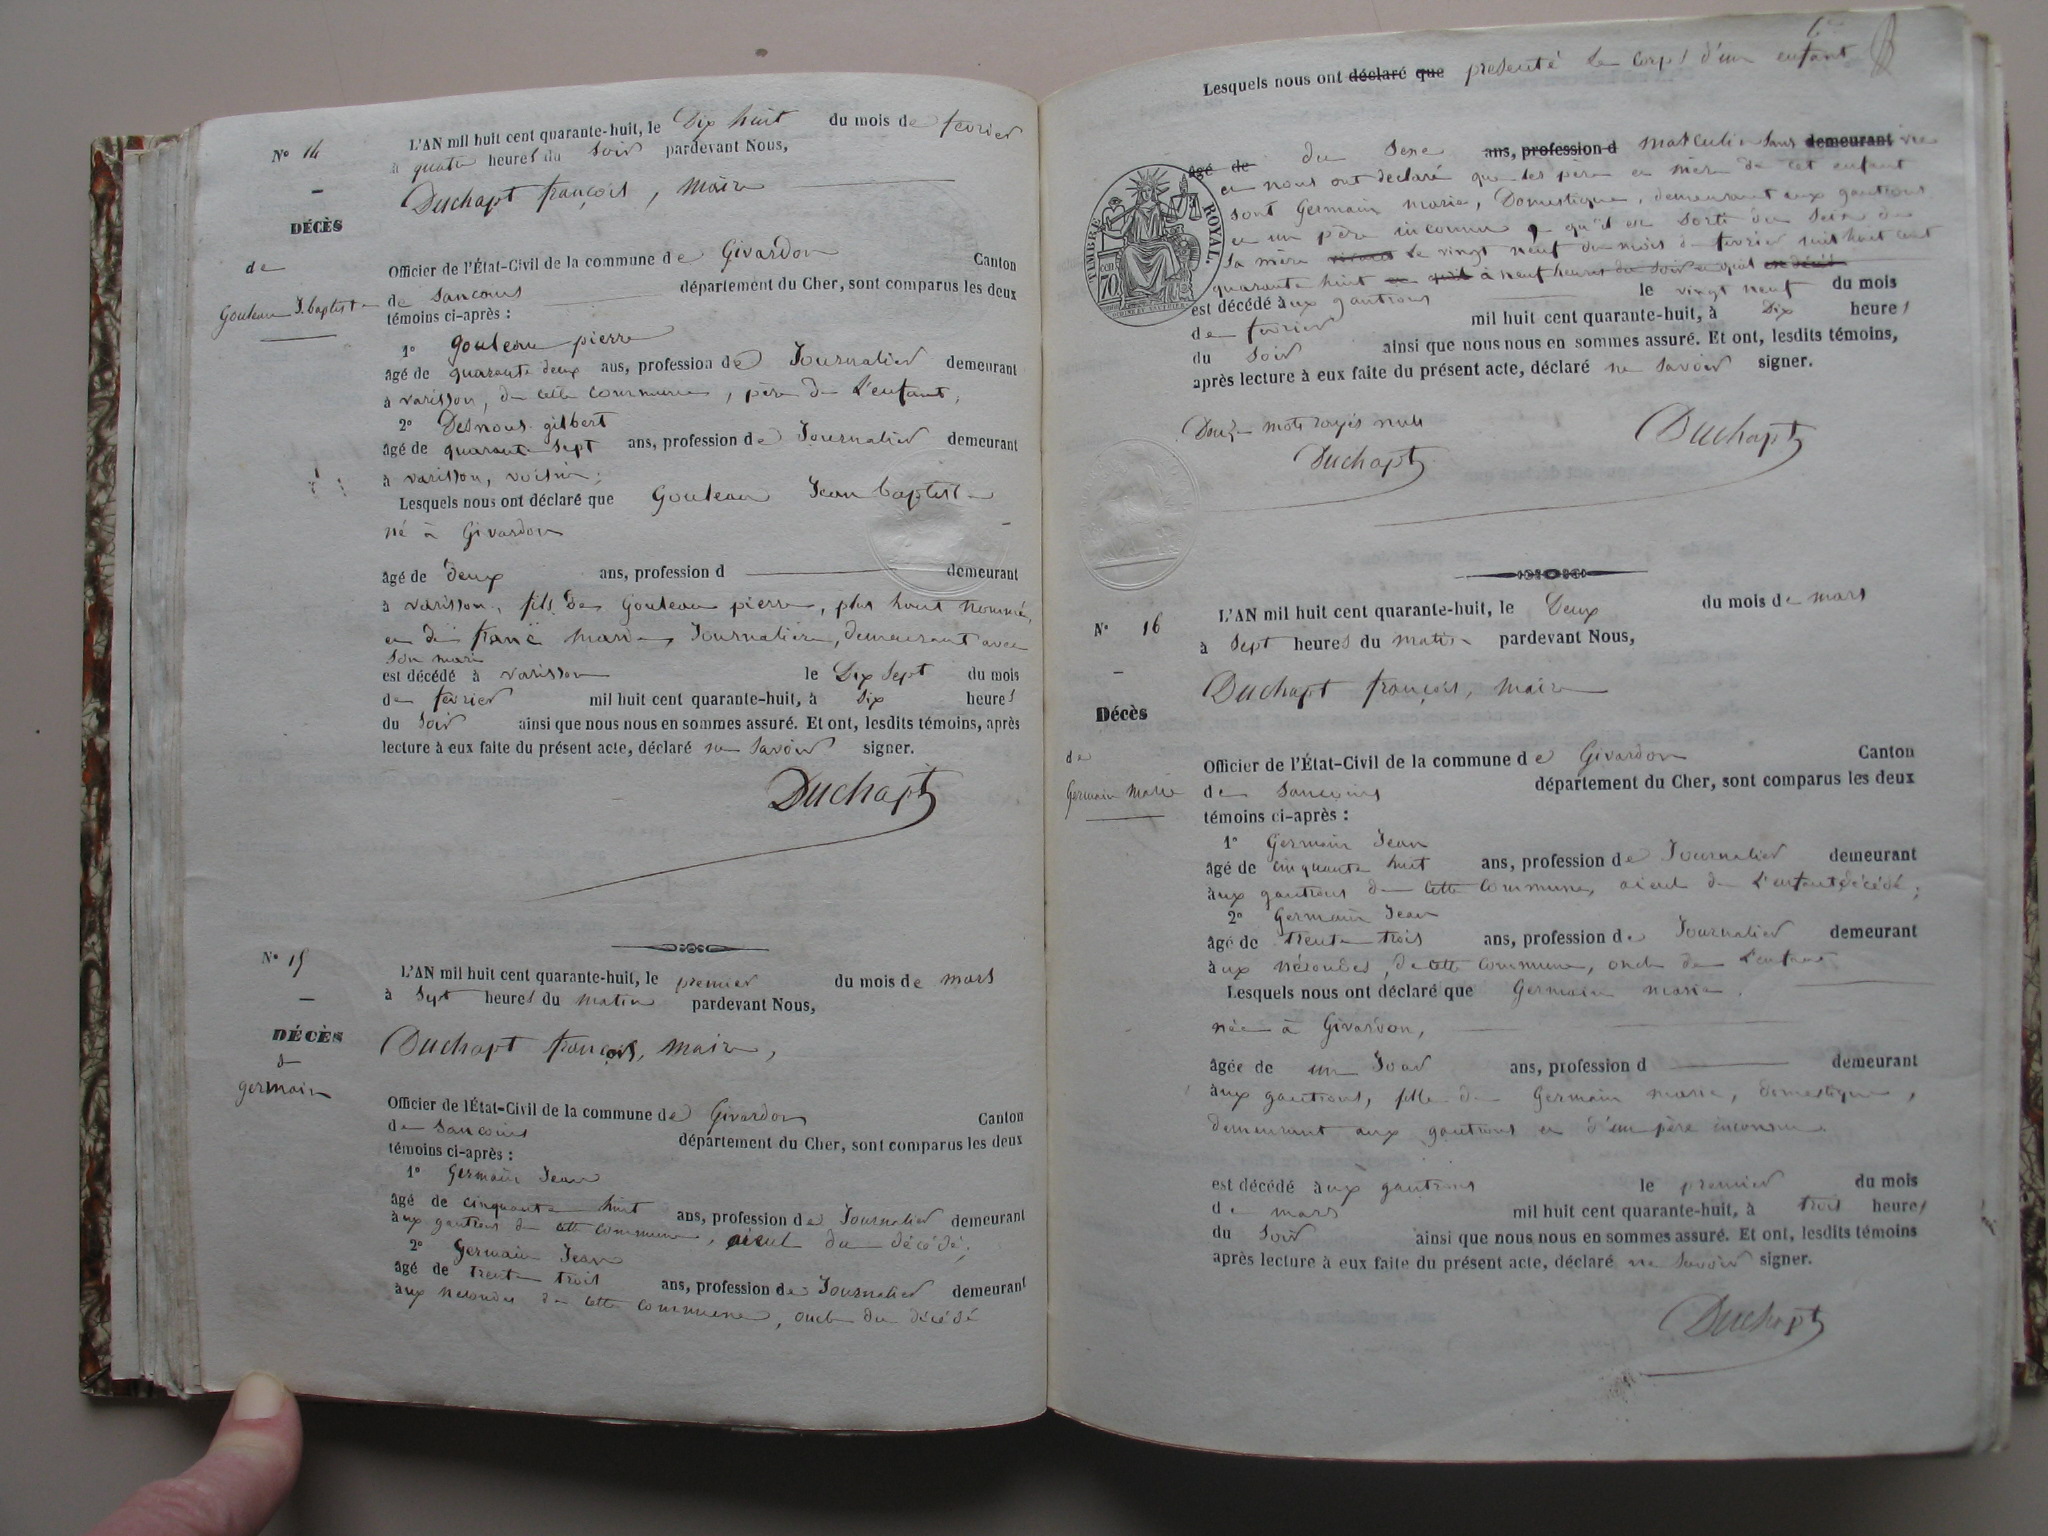 N° 14
DÉCÈS
de
Gouleau J. baptiste
L'AN mil huit cent quarante-huit, le Dix huit du mois de fevrier
à quatre heures du Soir pardevant Nous,
Duchapt françois, maire
Officier de l'État-Civil de la commune de Givardon Canton
de Sancoins département du Cher, sont comparus les deux
témoins ci-après :
1° Gouleau pierre
âgé de quarante deux ans, profession de Journalier demeurant
à varisson, de cette commune, père de L'enfant;
2° Desnous gilbert
âgé de quarante sept ans, profession de Journalier demeurant
à varisson, voisin;
Lesquels nous ont déclaré que Gouleau Jean baptiste
né à Givardon
âgé de deux ans, profession d demeurant
à varisson, fils de Gouleau pierre, plus haut nommé,
et de marie, Journalière, demeurant avec
son mari
est décédé à varisson le Dix Sept du mois
de fevrier mil huit cent quarante-huit, à Six heures
du Soir ainsi que nous nous en sommes assuré. Et ont, lesdits témoins, après
lecture à eux faite du présent acte, déclaré ne Savoir signer.
Duchapt
N° 15
DÉCÈS
de
germain
L'AN mil huit cent quarante-huit, le premier du mois de mars
à Sept heures du matin pardevant Nous,
Duchapt françois, maire,
Officier de l'État-Civil de la commune de Givardon Canton
de Sancoins département du Cher, sont comparus les deux
témoins ci-après :
1° Germain Jean
âgé de cinquante huit ans, profession de Journalier demeurant
aux gautrons de cette commune, aieul du décédé;
2° Germain Jean
âgé de trente trois ans, profession de Journalier demeurant
aux nérondes de cette commune, oncle du décédé
Lesquels nous ont déclaré que presenté le corps d'un enfant
âgé de du Sexe ans, profession d masculin Sans demeurant vie
et nous ont declaré que les père et mère de cet enfant
sont Germain marie, Domestique, demeurant aux gautrons
et un père inconnu, qu'il est sorti du Sein de
Sa mère le vingt neuf du mois de fevrier mil huit cent
quarante huit à neuf heures du Soir
est décédé aux gautrons le vingt neuf du mois
de fevrier mil huit cent quarante-huit, à Dix heures
du Soir ainsi que nous nous en sommes assuré. Et ont, lesdits témoins,
après lecture à eux faite du présent acte, déclaré ne Savoir signer.
TIMBRE ROYAL.
70
Douze mots rayés nuls
Duchapt
Duchapt
N° 16
Décès
de
Germain Marie
L'AN mil huit cent quarante-huit, le Deux du mois de mars
à Sept heures du matin pardevant Nous,
Duchapt françois, maire
Officier de l'État-Civil de la commune de Givardon Canton
de Sancoins département du Cher, sont comparus les deux
témoins ci-après :
1° Germain Jean
âgé de cinquante huit ans, profession de Journalier demeurant
aux gautrons de cette commune, aieul de L'enfant décédé;
2° Germain Jean
âgé de trente trois ans, profession de Journalier demeurant
aux nérondes, de cette commune, oncle de L'enfant
Lesquels nous ont déclaré que Germain marie
née à Givardon,
âgée de un Jour ans, profession d demeurant
aux gautrons, fille de Germain marie, domestique,
demeurant aux gautrons et d'un père inconnu
est décédé aux gautrons le premier du mois
de mars mil huit cent quarante-huit, à trois heures
du Soir ainsi que nous nous en sommes assuré. Et ont, lesdits témoins
après lecture à eux faite du présent acte, déclaré ne Savoir signer.
Duchapt